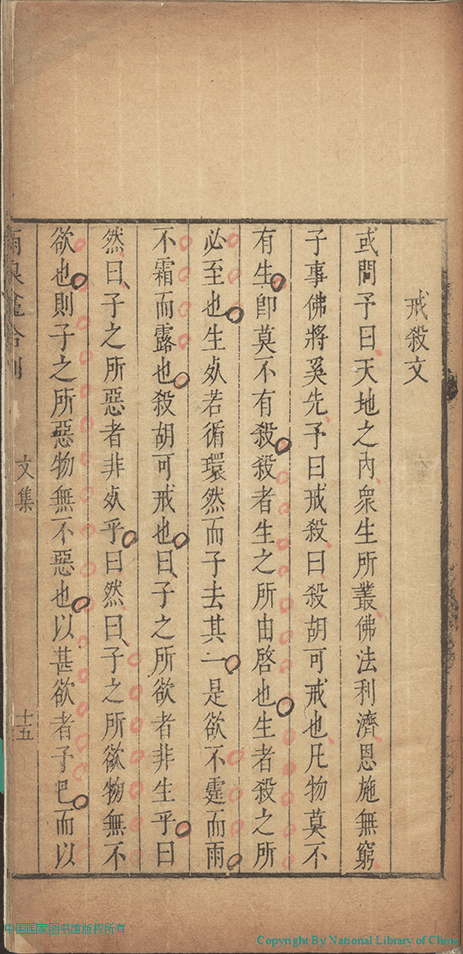 戒殺文
或問予曰天地之內衆生所叢佛法利濟恩施無窮
子事佛將奚先予曰戒殺曰殺胡可戒也凡物莫不
有生卽莫不有殺殺者生之所由啓也生者殺之所
必至也生死若循環然而子去其一是欲不霆而雨
不霜而露也殺胡可戒也曰子之所欲者非生乎曰
然曰子之所惡者非死乎曰然曰子之所欲物無不
欲也則子之所惡物無不惡也以甚欲者子巳而以
文集
十五
中国国家图书馆版权所有
Copyright By National Library of China